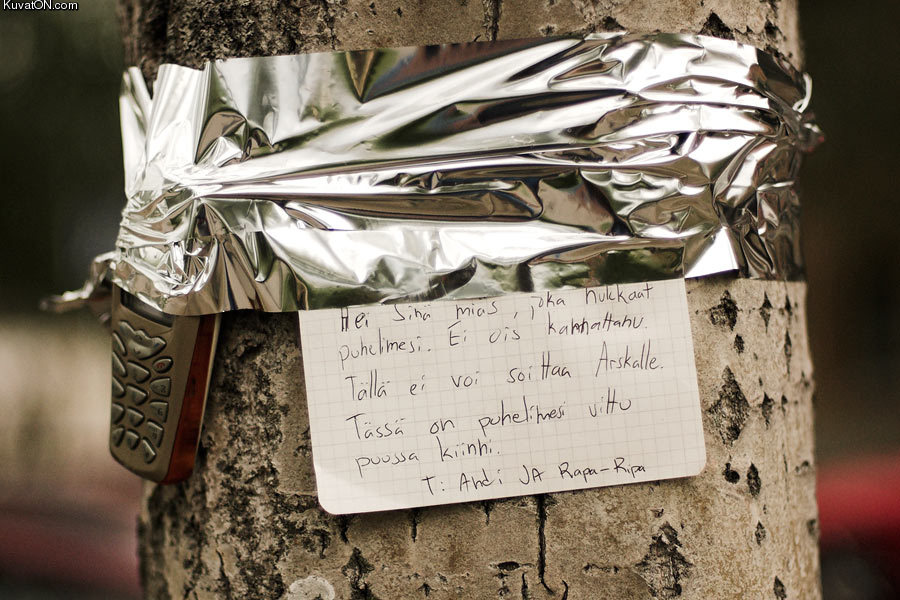 KuvatON.com
Hei sinä mias, joka hukkaat
puhelimesi. Ei ois kannattanu.
Tällä ei voi soittaa Arskalle.
Tässä on puhelimesi vittu
puussa kiinni.
T: Andi JA Rapa-Ripa